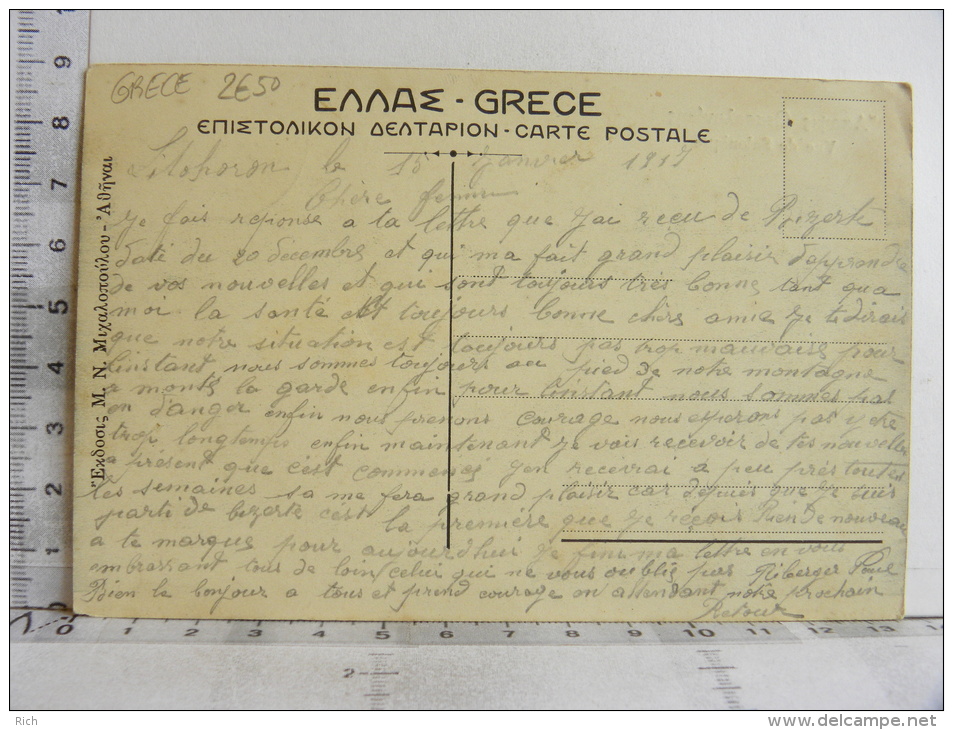 GRECE 2E50
ΕΛΛΑΣ - GRECE
ΕΠΙΣΤΟΛΙΚΟΝ ΔΕΛΤΑΡΙΟΝ - CARTE POSTALE
le 15 Janvier 1917
Chère femme
Je fais reponse a ta lettre que J'ai reçu de Bizerte
daté du 20 decembre et qui ma fait grand plaisir d'apprendre
de vos nouvelles et qui sont toujours très bonne tant qua
moi la santé est toujours bonne chers amie Je te dirais
que notre situation est toujours pas trop mauvaise pour
l'instant nous sommes toujours au pied de notre montagne
a monté la garde enfin pour l'instant nous sommes pas
en danger enfin nous prenons courage nous esperons pas y etre
trop longtemps enfin maintenant Je vais recevoir de tes nouvelles
a présent que c'est commencé J'en recevrai à peu près toutes
les semaines sa me fera grand plaisir car depuis que Je suis
parti de bizerte c'est la première que Je reçois Rien de nouveau
a te marqué pour aujourd'hui Je fini ma lettre en vous
embrassant tous de loin celui qui ne vous oublie pas Riberger Paul
Bien le bonjour a tous et prend courage en attendant notre prochain
Retour
Ἔκδοσις Μ. Ν. Μιχαλοπούλου - Ἀθῆναι
0 1 2 3 4 5 6 7 8 9
1 2 3 4 5 6 7 8 9 10 11 12 13 14
2
Rich
www.delcampe.net